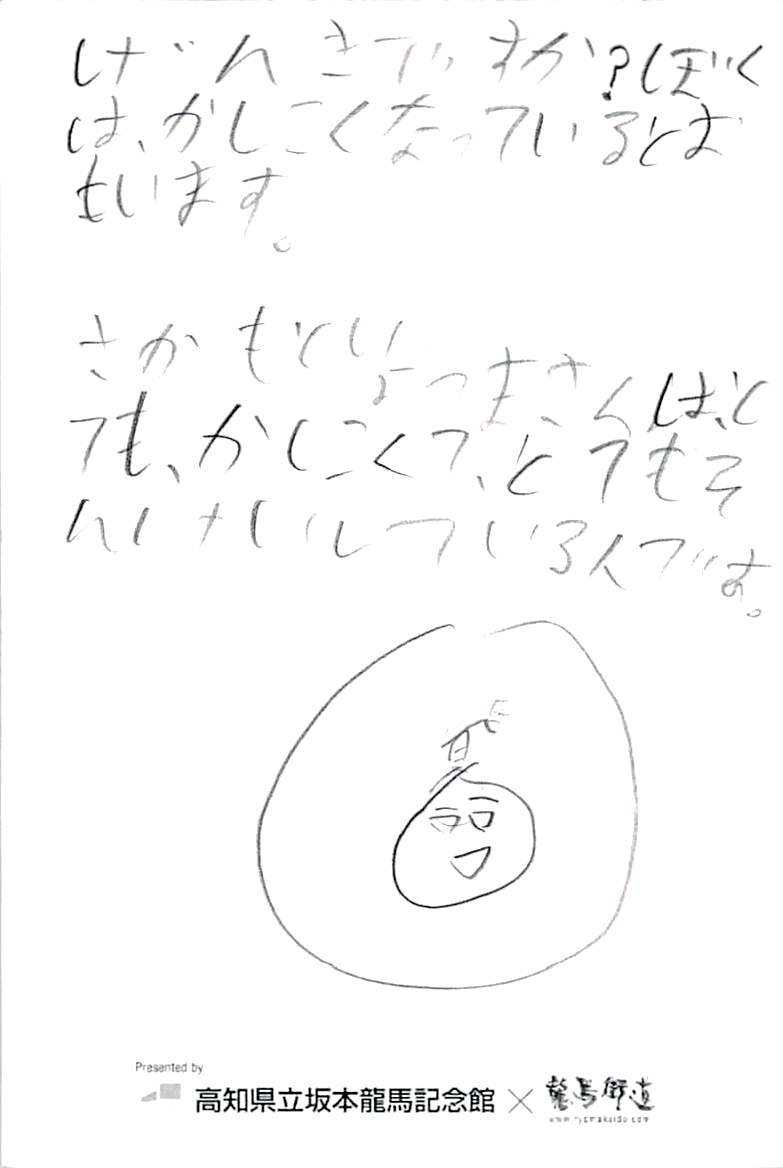 げんきですか?ぼく
は、かしこくなっているとお
もいます。
さかもとりょうまさんは、と
ても、かしこくて、とてもそ
んけいしている人です。
Presented by
高知県立坂本龍馬記念館×龍馬街道
www.ryomakaido.com